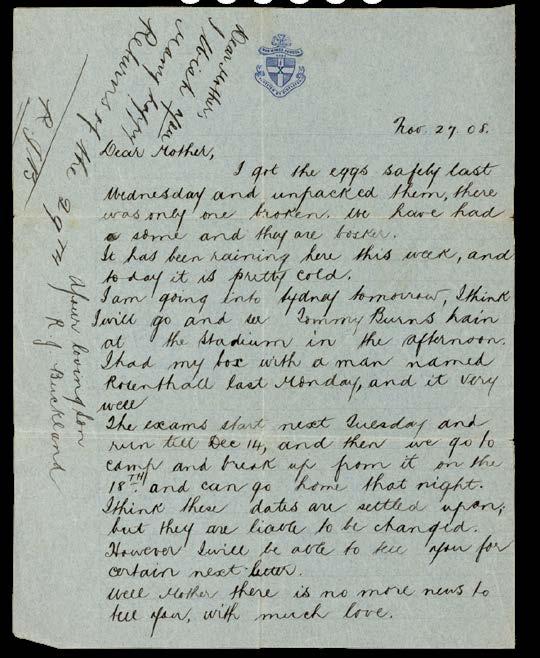 THE KINGS SCHOOL
Nov. 27. 08.
Dear Mother,
I got the eggs safely last
Wednesday and unpacked them, there
was only one broken. We have had
some and they are bosker.
It has been raining here this week, and
to day it is pretty cold.
I am going into Sydney tomorrow, I think
I will go and see Tommy Burns train
at the Stadium in the afternoon.
I had my box with a man named
Rosenthall last Monday, and it very
well
The exams start next Tuesday and
run till Dec 14, and then we go to
camp and break up from it on the
18TH and can go home that night.
I think these dates are settled upon,
but they are liable to be changed.
However I will be able to tell you for
certain next letter.
Well Mother there is no more news to
tell you, with much love.
Your loving son
R J Buckland
Dear Mother,
I Wish you
Many happy
Returns of the 29th
R.J.B